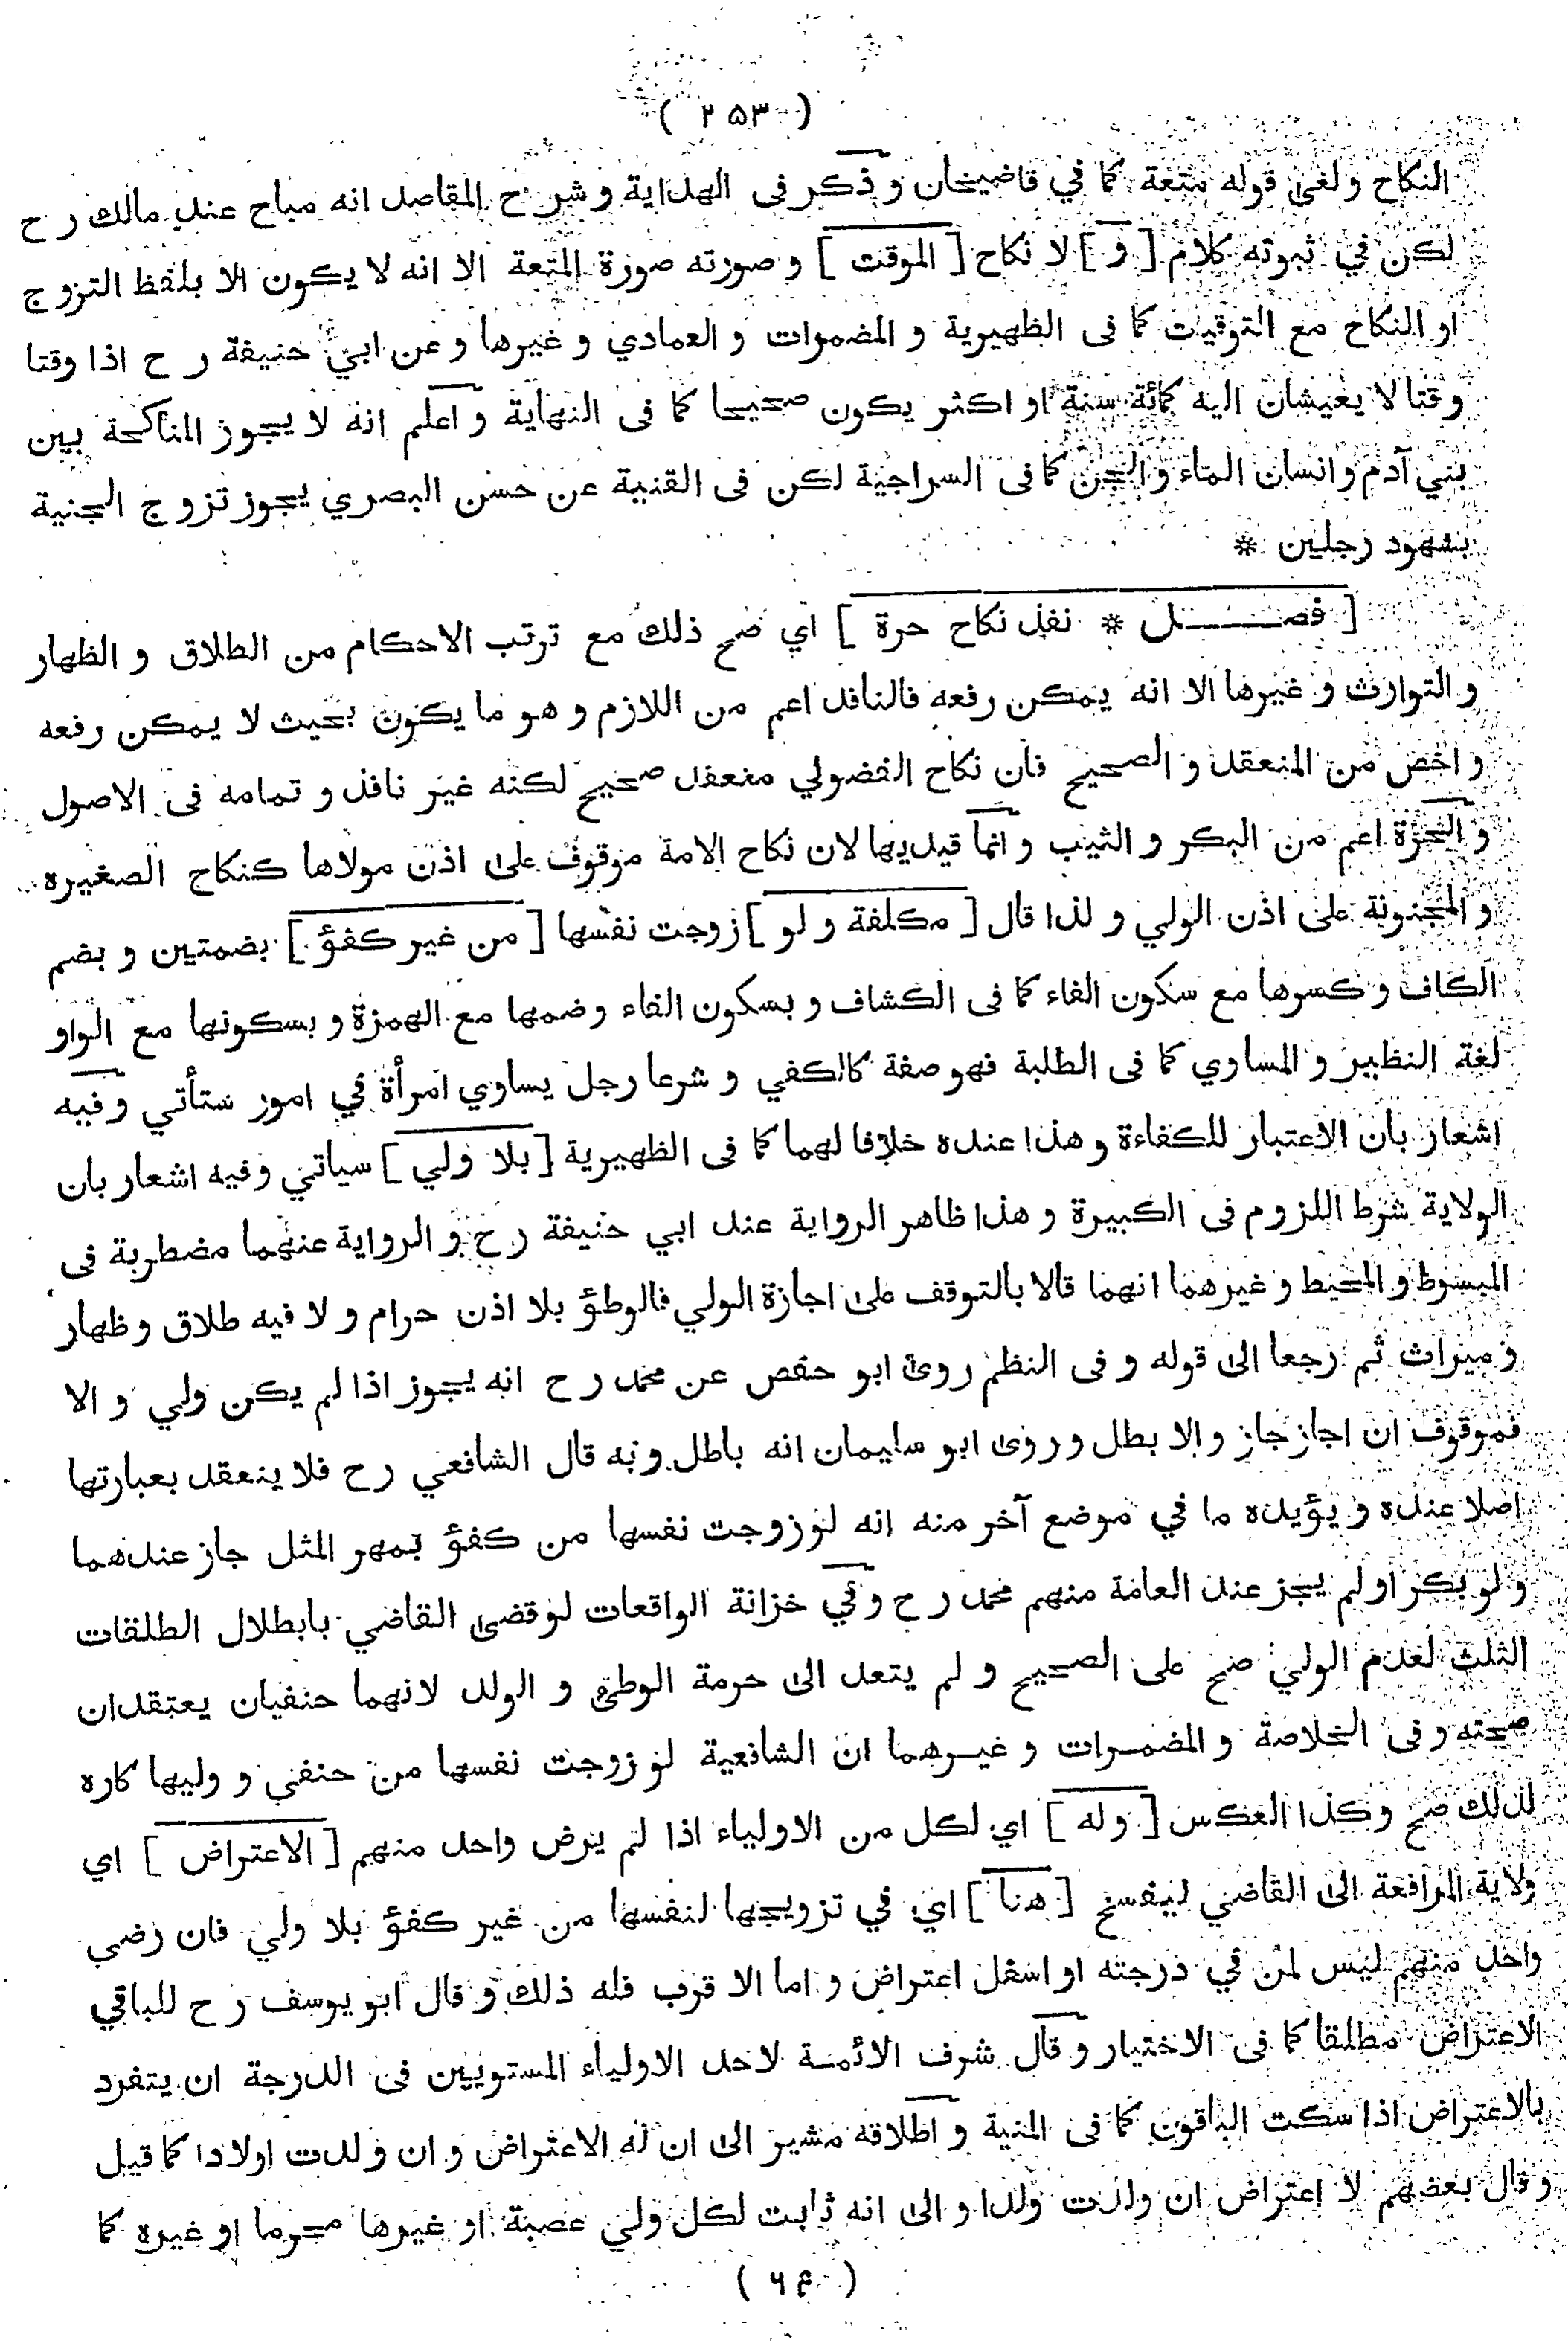 ( ۲۵۳ )
النكاح ولغى قوله متعة كما في قاضيخان و ذكر فى الهداية و شرح المقاصد انه مباح عند مالك ر ح
لكن في ثبوته كلام [ و ] لا نكاح [ الموقت ] و صورته صورة المتعة الا انه لا يكون الا بلفظ التزوج
او النكاح مع التوقيت كما فى الظهيرية و المضمرات و العمادي و غيرها و عن ابي حنيفة ر ح اذا وقتا
وقتا لا يعيشان اليه كمائة سنة او اكثر يكون صحيحا كما فى النهاية و اعلم انه لا يجوز المناكحة بين
بني آدم و انسان الماء و الجن كما فى السراجية لكن فى القنية عن حسن البصري يجوز تزوج الجنية
بشهود رجلين *
[ فصــــل * نفذ نكاح حرة ] اي صح ذلك مع ترتب الاحكام من الطلاق و الظهار
و التوارث و غيرها الا انه يمكن رفعه فالنافذ اعم من اللازم و هو ما يكون بحيث لا يمكن رفعه
و اخص من المنعقد و الصحيح فان نكاح الفضولي منعقد صحيح لكنه غير نافذ و تمامه فى الاصول
و الحرة اعم من البكر و الثيب و انما قيد بها لان نكاح الامة موقوف على اذن مولاها كنكاح الصغيره
و المجنونة على اذن الولي و لذا قال [ مكلفة و لو ] زوجت نفسها [ من غير كفؤ ] بضمتين و بضم
الكاف و كسرها مع سكون الفاء كما فى الكشاف و بسكون الفاء و ضمها مع الهمزة و بسكونها مع الواو
لغة النظير و المساوي كما فى الطلبة فهو صفة كالكفي و شرعا رجل يساوي امرأة في امور ستأتي و فيه
اشعار بان الاعتبار للكفاءة و هذا عنده خلافا لهما كما فى الظهيرية [ بلا ولي ] سياتي و فيه اشعار بان
الولاية شرط اللزوم فى الكبيرة و هذا ظاهر الرواية عند ابي حنيفة ر ح و الرواية عنهما مضطربة فى
المبسوط و المحيط و غيرهما انهما قالا بالتوقف على اجازة الولي فالوطؤ بلا اذن حرام و لا فيه طلاق و ظهار
و ميراث ثم رجعا الى قوله و فى النظم روى ابو حفص عن محمد ر ح انه يجوز اذا لم يكن ولي و الا
فموقوف ان اجاز جاز و الا بطل و روى ابو سليمان انه باطل و به قال الشافعي ر ح فلا ينعقد بعبارتها
اصلا عنده و يؤيده ما في موضع آخر منه انه لو زوجت نفسها من كفؤ بمهر المثل جاز عندهما
و لو بكرا و لم يجز عند العامة منهم محمد ر ح و في خزانة الواقعات لو قضى القاضي بابطلال الطلقات
الثلث لعدم الولي صح على الصحيح و لم يتعد الى حرمة الوطئ و الولد لانهما حنفيان يعتقدان
صحته و فى الخلاصة و المضمرات و غيرهما ان الشافعية لو زوجت نفسها من حنفي و وليها كاره
لذلك صح و كذا العكس [ و له ] اي لكل من الاولياء اذا لم يرض واحد منهم [ الاعتراض ] اي
ولاية المرافعة الى القاضي ليفسخ [ هنا ] اي في تزويجها لنفسها من غير كفؤ بلا ولي فان رضي
واحد منهم ليس لمن في درجته او اسفل اعتراض و اما الا قرب فله ذلك و قال ابو يوسف ر ح للباقي
الاعتراض مطلقا كما فى الاختيار و قال شرف الائمة لاحد الاولياء المستويين فى الدرجة ان يتفرد
بالاعتراض اذا سكت الباقون كما فى المنية و اطلاقه مشير الى ان له الاعتراض و ان ولدت اولادا كما قيل
و قال بعضهم لا اعتراض ان ولدت ولدا و الى انه ثابت لكل ولي عصبة او غيرها محرما او غيره كما